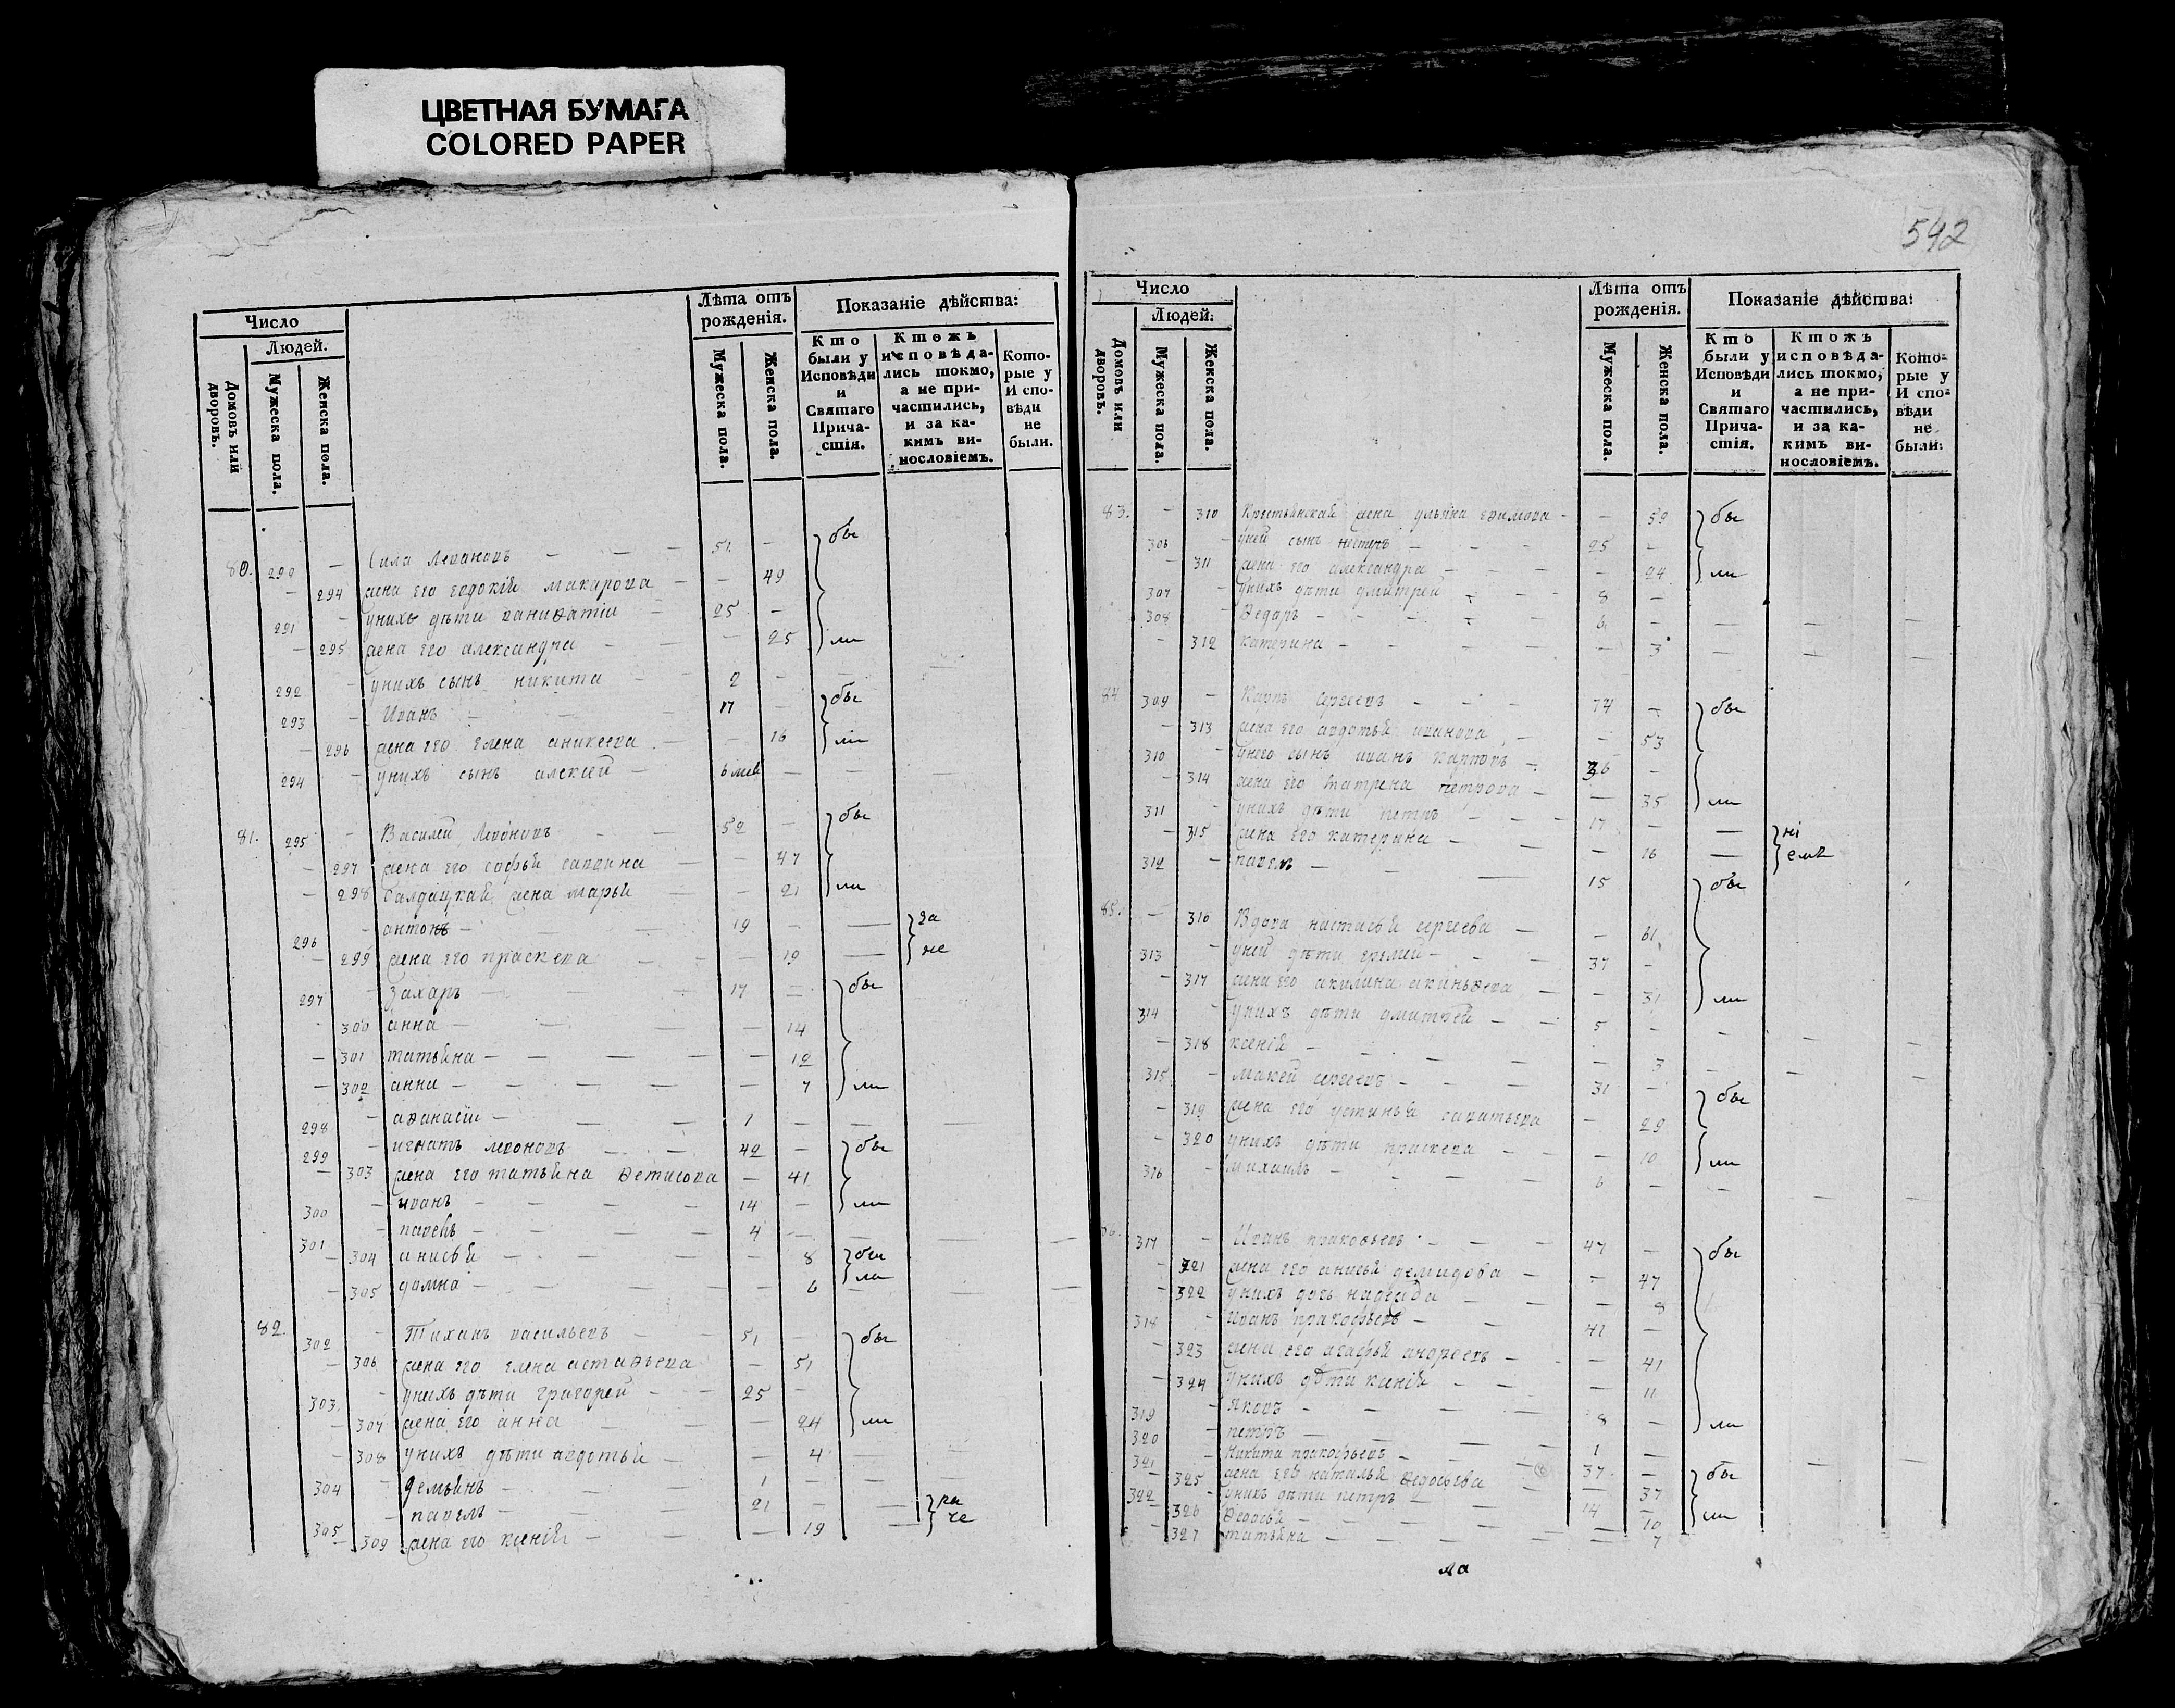 ЦВЕТНАЯ БУМАГА
COLORED PAPER
542
Число
Людей.
Домовъ или дворовъ.
Мужеска пола.
Женска пола.
Лѣта отъ рожденія.
Мужеска пола.
Женска пола.
Показаніе дѣйства:
Кто были у Исповѣди и Святаго Причастія.
Ктожъ исповѣдались токмо, а не причастились, и за какимъ винословіемъ.
Которые у Исповѣди не были.
80. 290 — Сила Леванов — 51 — бы
— 294 жена его евдокія макарова — 49
291 — у нихъ дѣти 25 —
— 295 жена его александра — 25 ли
292 — у нихъ сынъ никита 2 —
293 — Иванъ 17 — бы
— 296 жена его елена аникеева — 16 ли
294 — у нихъ сынъ алексей 6 —
81. 295 — Василей 52 — бы
— 297 жена его софья саввина — 47
— 298 салдацкая жена марья — 21 ли
296 — антонъ 19 — —
— 299 жена его праскева — 19 — не
297 — Захаръ 17 — бы
— 300 анна — 14
— 301 татьяна — 12
— 302 анна — 7 ли
298 — аѳанасіи 1 —
299 — игнатъ 42 — бы
— 303 жена его татьяна — 41
300 — иванъ 14 — ли
301 — павелъ 4 —
— 304 анисья — 8 бы
— 305 домна — 6 ла
82. 302 — Тиханъ васильевъ 51 — бы
— 306 жена его елена астаѳьева — 51
303 — у нихъ дѣти григорей 25 —
— 307 жена его анна — 24 ли
— 308 у нихъ дѣти авдотья — 4
304 — демьянъ 1 —
305 — павелъ 21 — —
— 309 жена его ксенія — 19 —
Число
Людей.
Домовъ или дворовъ.
Мужеска пола.
Женска пола.
Лѣта отъ рожденія.
Мужеска пола.
Женска пола.
Показаніе дѣйства:
Кто были у Исповѣди и Святаго Причастія.
Ктожъ исповѣдались токмо, а не причастились, и за какимъ винословіемъ.
Которые у Исповѣди не были.
83. — 310 Крестьянская жена ульяна еѳимова — 59 бы
306 — у ней сынъ 25 —
— 311 жена его александра — 24 ли
307 — у нихъ дѣти дмитрей 8 —
308 — Ѳедаръ 6 —
— 312 катерина — 3
84 309 — Карпъ сергеевъ 74 — бы
— 313 жена его авдотья иванова — 53
310 — у него сынъ иванъ карповъ 36 —
— 314 жена его матрена петрова — 35 ли
311 — у нихъ дѣти петръ 17 — —
— 315 жена его катерина — 16 —
312 — павелъ 15 бы
85. — 310 Вдова настасья сергеева — 61
313 — у ней дѣти еремей 37 —
— 317 жена его акилина — 31 ли
314 — у нихъ дѣти дмитрей 5 —
— 318 ксенія — 3
315 — Макей сергеевъ 31 — бы
— 319 жена его устинья — 29
— 320 у нихъ дѣти праскева — 10 ли
316 — михаилъ 6 —
317 — Иванъ прокоѳьевъ 47 — бы
— 321 жена его анисья демидова — 47
— 322 у нихъ дочь надежда — 8
318 — Иванъ пракофьевъ 41 —
— 323 жена его агафья — 41
— 324 у нихъ дѣти ксенія — 11
319 — яковъ 8 — ли
320 — петръ 1 —
321 — никита пракофьевъ 37 — бы
— 325 жена его наталья Ѳедосьева — 37
322 — у нихъ дѣти петръ 14 —
— 326 Ѳедосья — 10 ли
— 327 татьяна — 7
ла